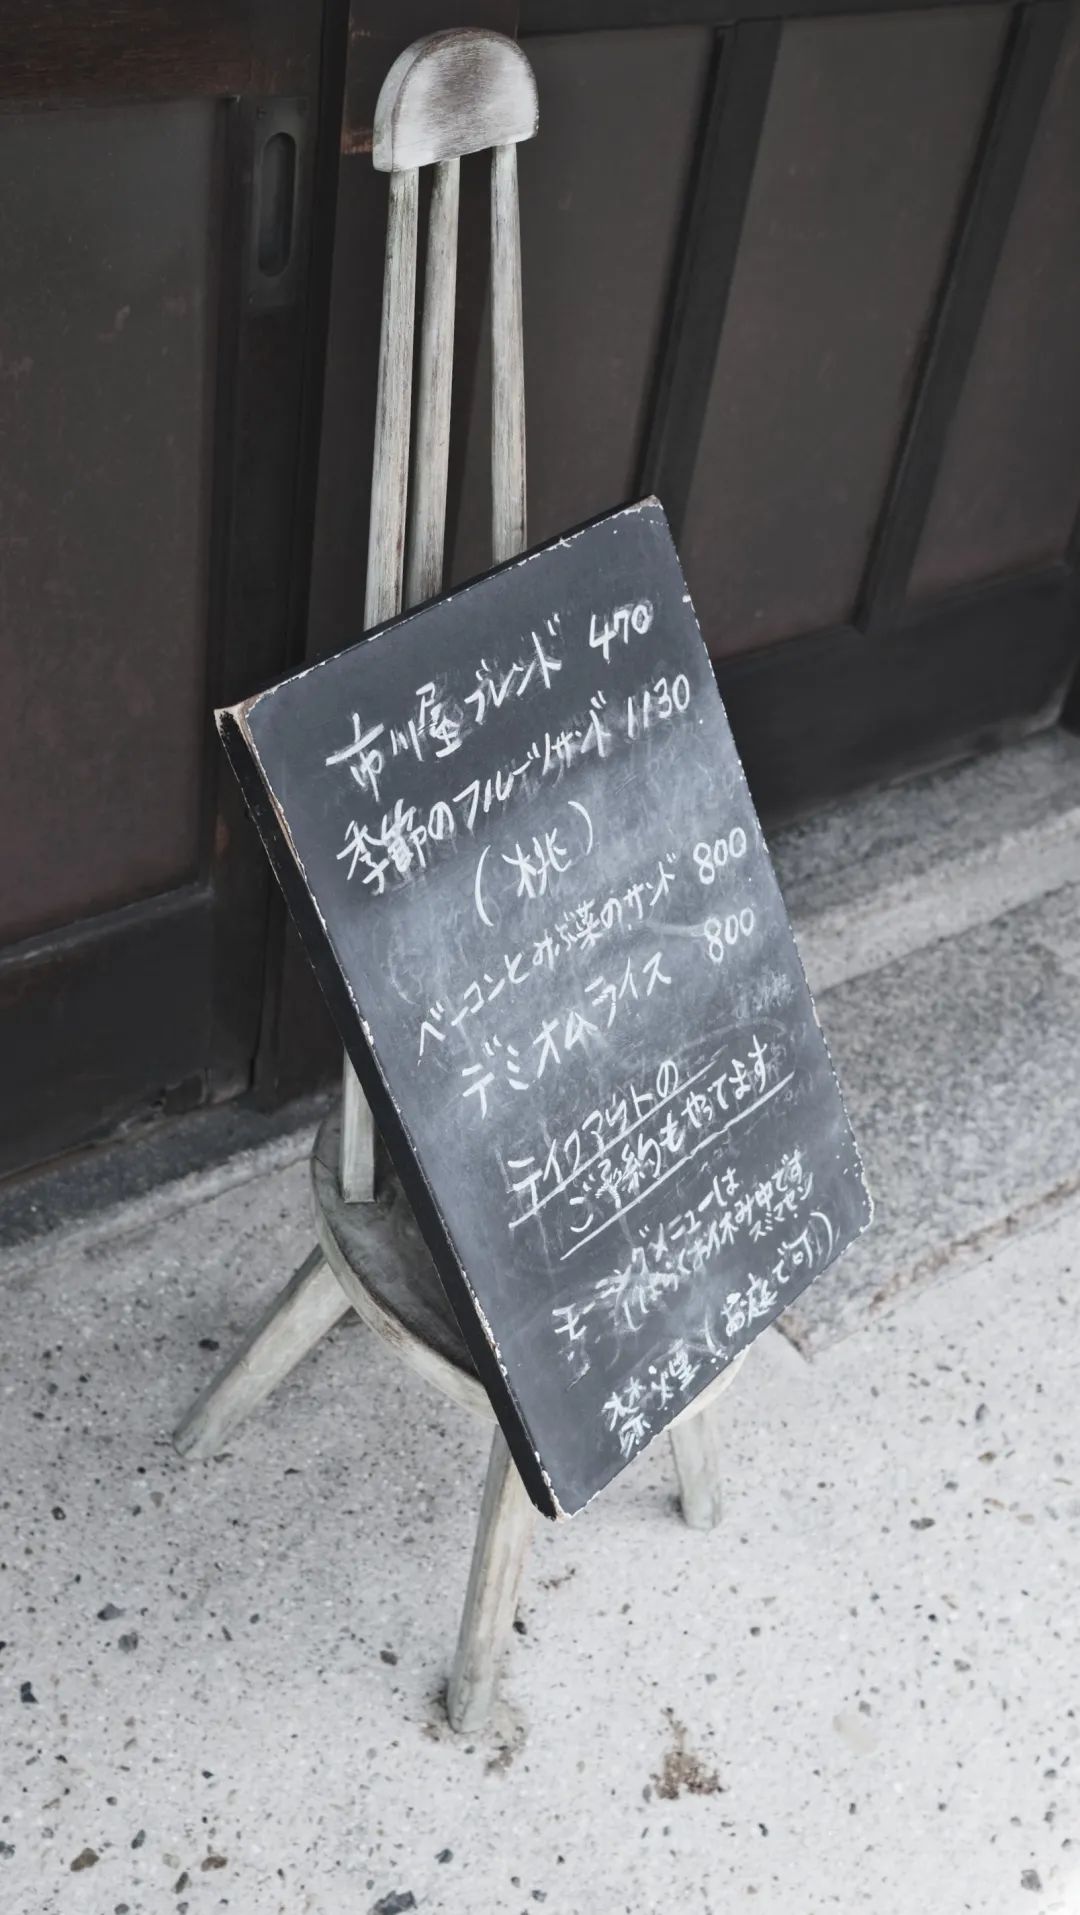 市川屋ブレンド 470
季節のフルーツサンド 1130
(桃)
ベーコンとみぶ菜のサンド 800
デミオムライス 800
テイクアウトの
ご予約もやってます
モーニングメニューは
しばらくお休み中です
スミマセン
禁煙(お庭で可)